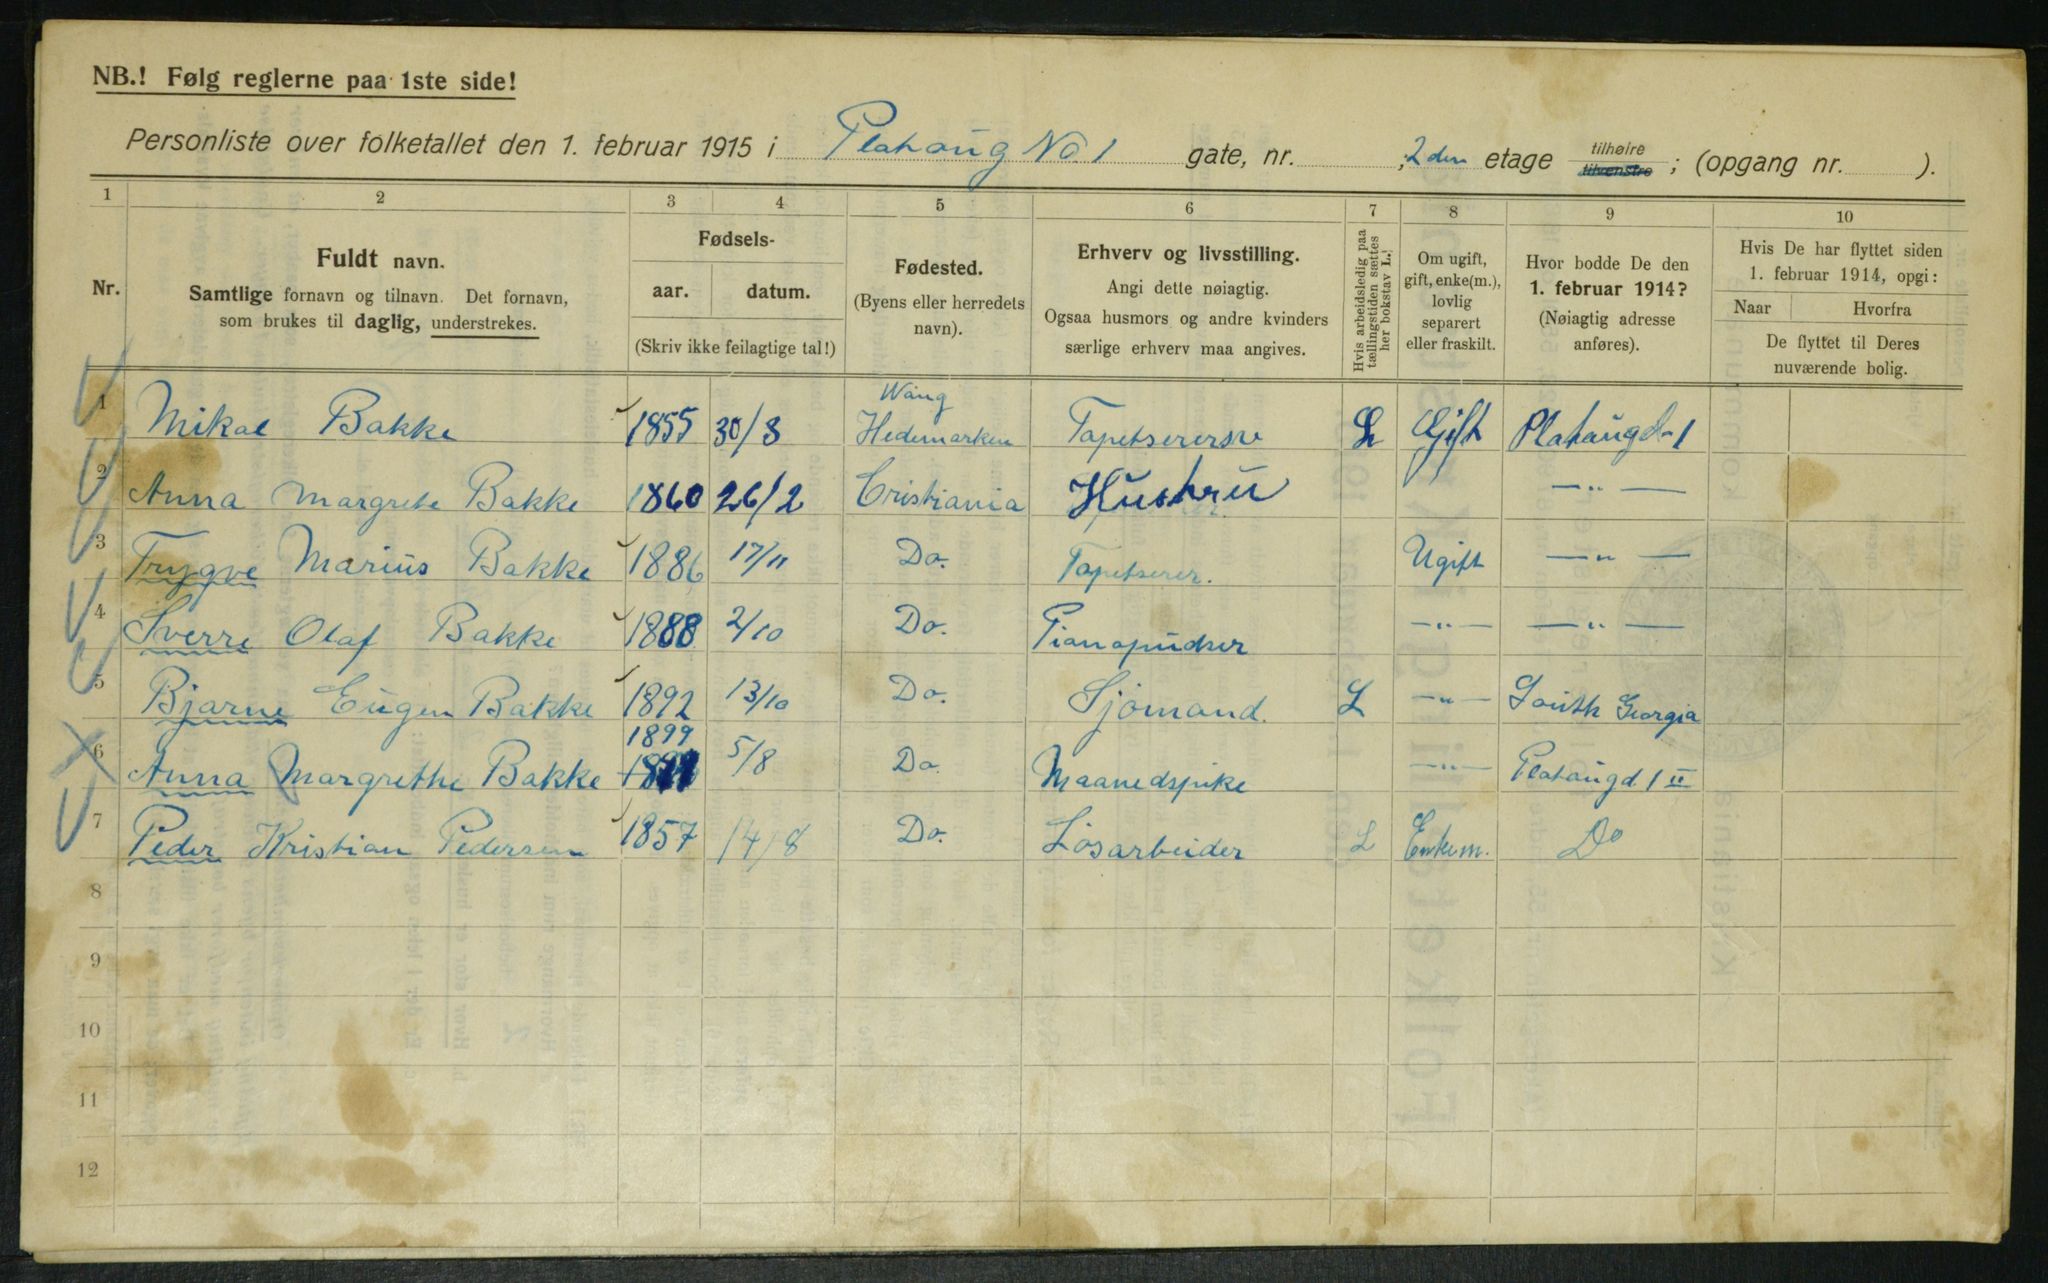 NB.! Følg reglerne paa 1ste side!
Personliste over folketallet den 1. februar 1915 i Platoug No 1 gate, nr. ; 2den etage tilhøire tilvenstre ; (opgang nr. ).
1 2 3 4 5 6 7 8 9 10
Nr.
Fuldt navn.
Samtlige fornavn og tilnavn. Det fornavn,
som brukes til daglig, understrekes.
Fødsels-
aar. datum.
(Skriv ikke feilagtige tal!)
Fødested.
(Byens eller herredets
navn).
Erhverv og livsstilling.
Angi dette nøiagtig.
Ogsaa husmors og andre kvinders
særlige erhverv maa angives.
Hvis arbeidsledig paa
tællingstiden sættes
her bokstav L.
Om ugift,
gift, enke(m.),
lovlig
separert
eller fraskilt.
Hvor bodde De den
1. februar 1914?
(Nøiagtig adresse
anføres).
Hvis De har flyttet siden
1. februar 1914, opgi:
Naar Hvorfra
De flyttet til Deres
nuværende bolig.
Wang
1 Mikal Bakke 1855 30/8 Hedemarken L Gift Platougd-1
2 Anna Margrete Bakke 1860 26/2 Cristiania Hustru —„—
3 Trygve Marius Bakke 1886 17/11 Do. Tapetserer. Ugift —„—
4 Sverre Olaf Bakke 1888 2/10 Do. Pianopudser —„— —„—
5 Bjarne Eugen Bakke 1892 13/10 Do. Sjømand. L —„— South Georgia
1899
6 Anna Margrethe Bakke 5/8 Do Maanedspike —„— Platougd 1 II
7 Peder Kristian Pedersen 1857 14/8 Do. Løsarbeider L Enkem. Do
8
9
10
11
12